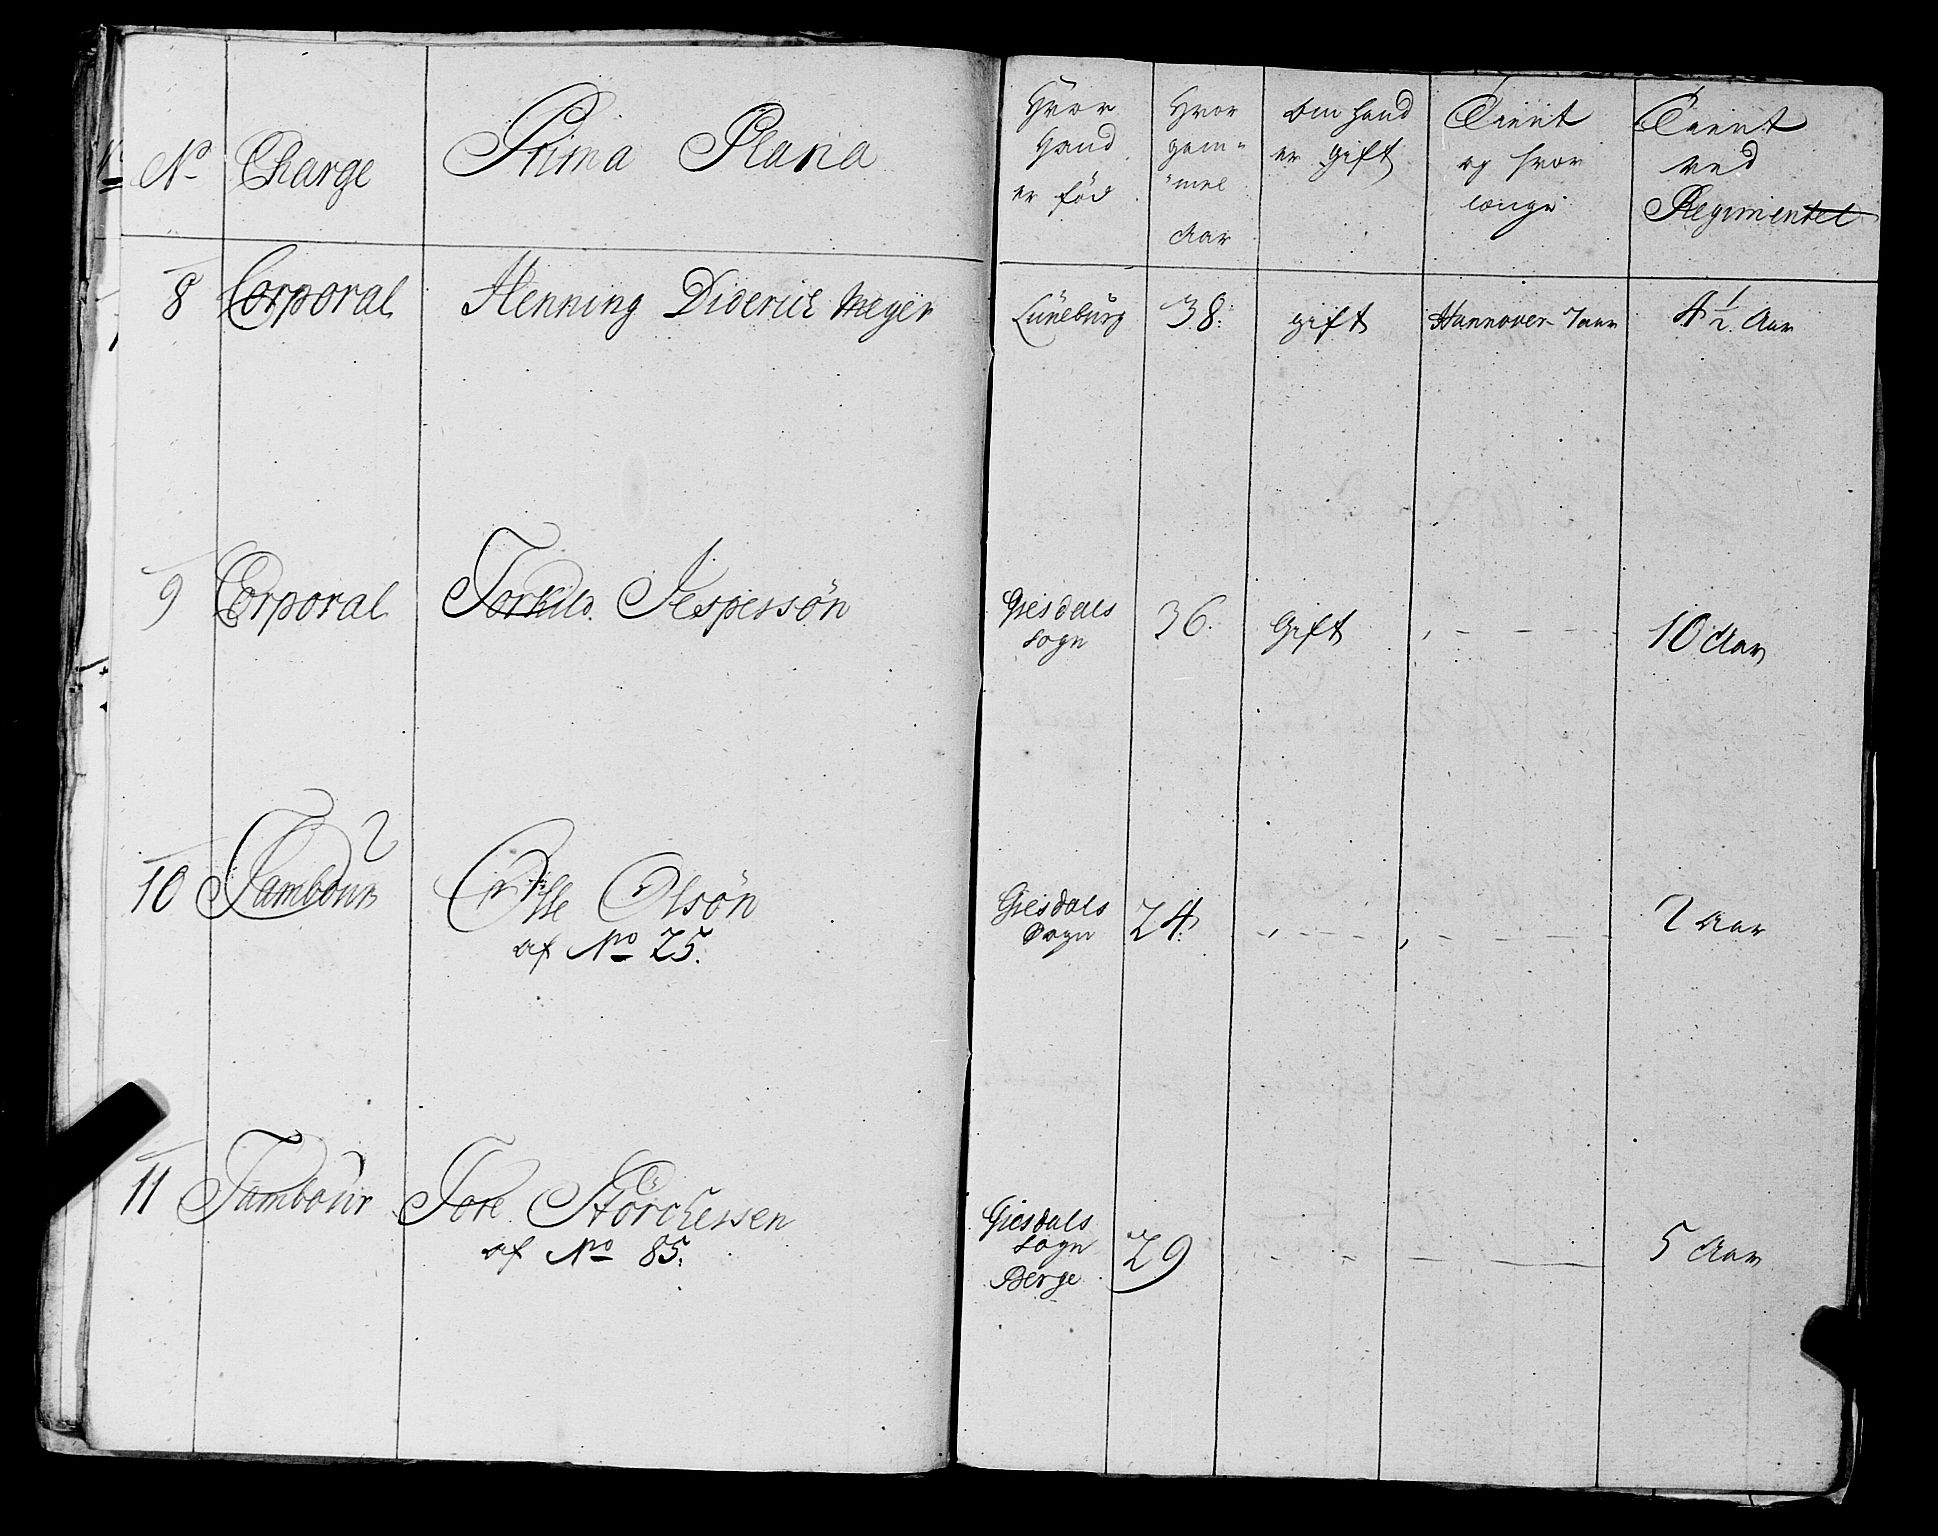 No Charge Prima Plana
Hvor
Hand
er föd
Hvor
gam=
=mel
Aar
Om hand
er gift
Tient
og hvor
længe
Tient
ved
Regimentet
8 Corporal Henning Diderich Meyer Lüneburg 38: gift Hannover 7 aar 4 1/2 Aar
9 Corporal Torkild Jespersön Giesdals 36. Gift , - - - 10 Aar
sogn
10 Tambour Olle Olsön Giesdals 24. , - - , - - - 2 Aar
af No 25. Sogn
11 Tambour Tore Störchersen Giesdals 29 - - - - - 5 Aar
af No 85. sogn
Berge